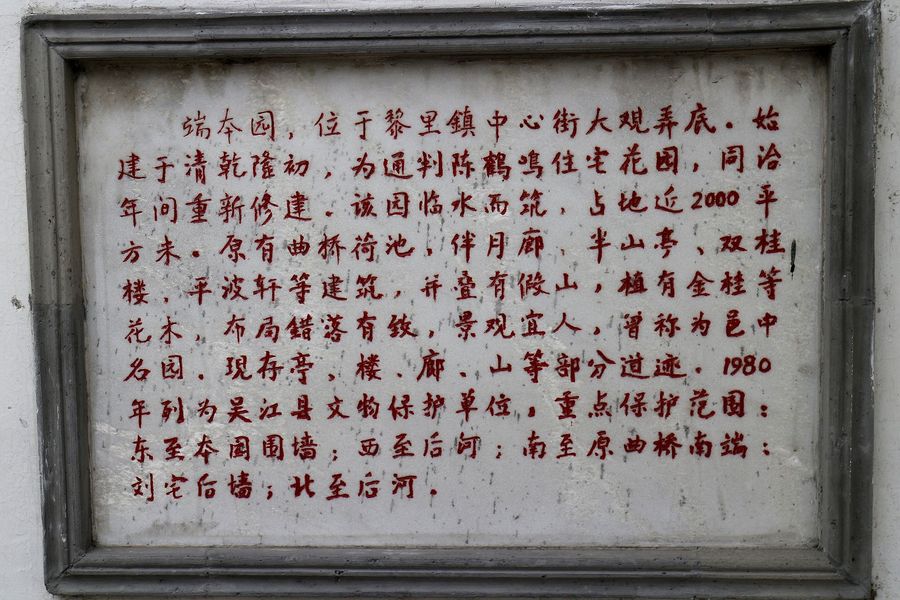 端本园，位于黎里鎮中心街大观弄底。始
建于清乾隆初，为通判陈鹤鳴住宅花园，同治
年间重新修建。该园临水而筑，占地近2000平
方米。原有曲桥荷池，伴月廊、半山亭、双桂
楼，平波轩等建筑，并叠有假山，植有金桂等
花木，布局錯落有致，景观宜人，曾称为邑中
名园。現存亭、楼、廊、山等部分遗迹。1980
年列为吴江县文物保护单位。重点保护范围：
东至本园围墙；西至后河；南至原曲桥南端；
刘宅后墙；北至后河。